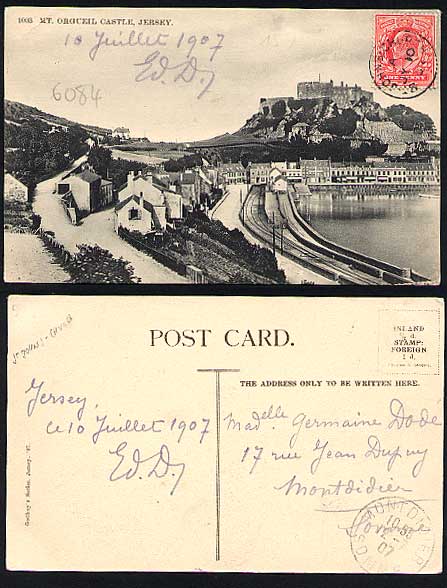 1003 MT. ORGUEIL CASTLE, JERSEY.
10 Juillet 1907
Ed. D.
6084
ONE PENNY
POST CARD.
INLAND
½ d.
STAMP:
FOREIGN
1 d.
THE ADDRESS ONLY TO BE WRITTEN HERE.
Jersey,
ce 10 Juillet 1907
Ed. D.
Madelle Germaine Dodé
17 rue Jean Dupuy
Montdidier
Somme
MONTDIDIER
07